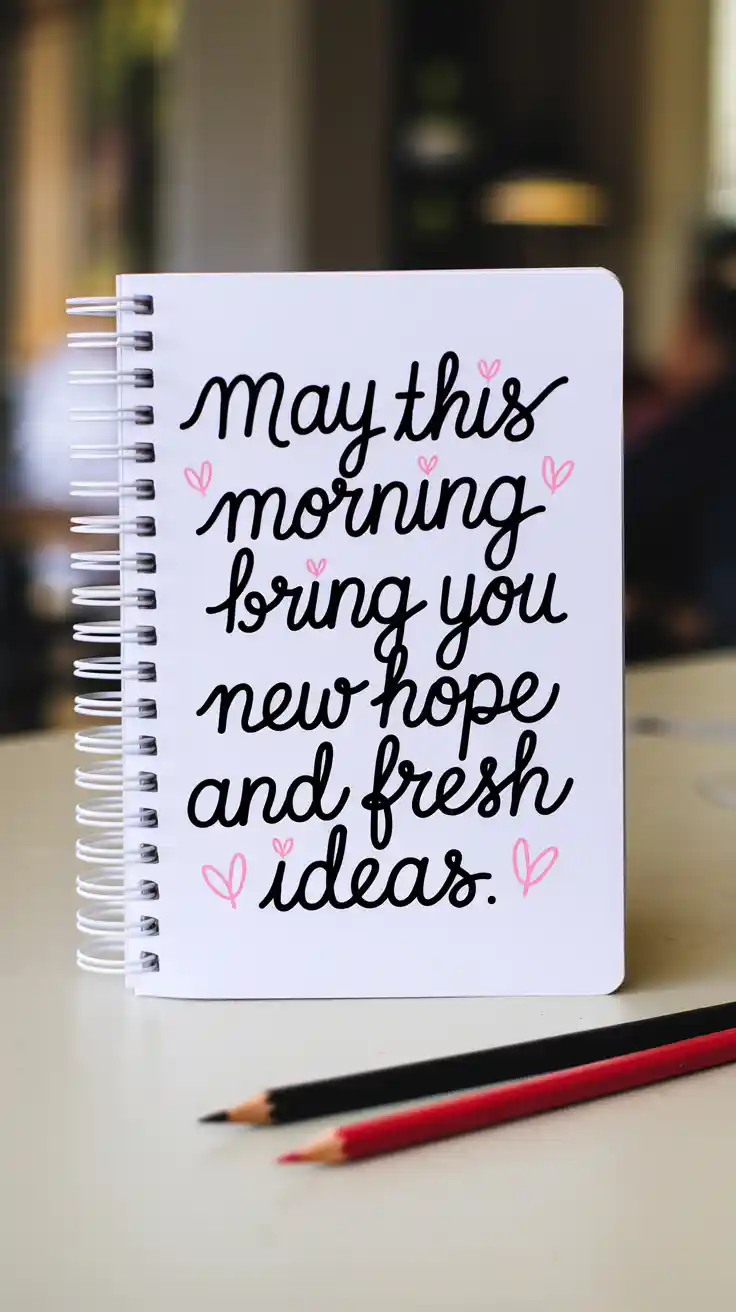 May this
morning
bring you
new hope
and fresh
ideas.